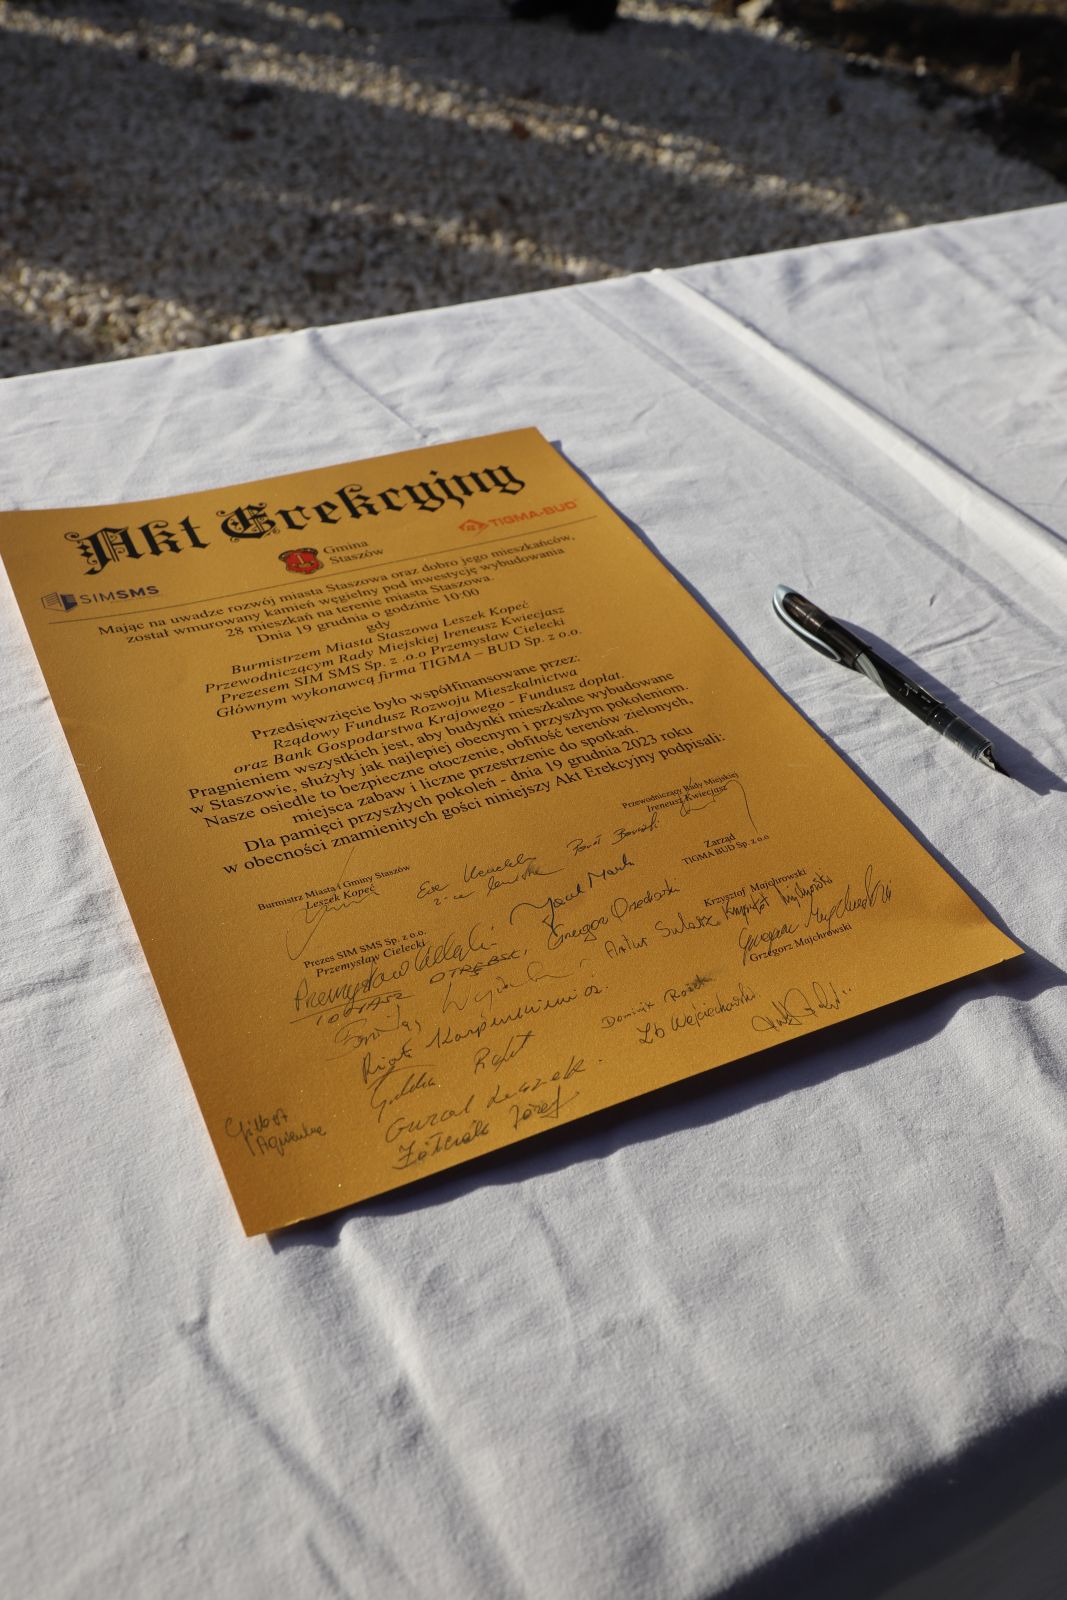 Akt Erekcyjny
SIMSMS
Gmina
Staszów
TIGMA-BUD
Mając na uwadze rozwój miasta Staszowa oraz dobro jego mieszkańców,
został wmurowany kamień węgielny pod inwestycję wybudowania
28 mieszkań na terenie miasta Staszowa.
Dnia 19 grudnia o godzinie 10:00
gdy
Burmistrzem Miasta Staszowa Leszek Kopeć
Przewodniczącym Rady Miejskiej Ireneusz Kwiecjasz
Prezesem SIM SMS Sp. z .o.o Przemysław Cielecki
Głównym wykonawcą firma TIGMA – BUD Sp. z o.o.
Przedsięwzięcie było współfinansowane przez:
Rządowy Fundusz Rozwoju Mieszkalnictwa
oraz Bank Gospodarstwa Krajowego - Fundusz dopłat.
Pragnieniem wszystkich jest, aby budynki mieszkalne wybudowane
w Staszowie, służyły jak najlepiej obecnym i przyszłym pokoleniom.
Nasze osiedle to bezpieczne otoczenie, obfitość terenów zielonych,
miejsca zabaw i liczne przestrzenie do spotkań.
Dla pamięci przyszłych pokoleń - dnia 19 grudnia 2023 roku
w obecności znamienitych gości niniejszy Akt Erekcyjny podpisali:
Przewodniczący Rady Miejskiej
Ireneusz Kwiecjasz
Burmistrz Miasta i Gminy Staszów
Leszek Kopeć
Ewa
Zarząd
TIGMA BUD Sp. z o.o
Jacek
Prezes SIM SMS Sp. z o.o.
Przemysław Cielecki
Grzegorz
Krzysztof Majchrowski
Przemysław Cielecki
TOMASZ OTRĘBSKI
Artur
Krzysztof
Grzegorz Majchrowski
Grzegorz Majchrowski
Piotr
Dominik Rożek
Zb Wojciechowski
Guzal Leszek
Józef